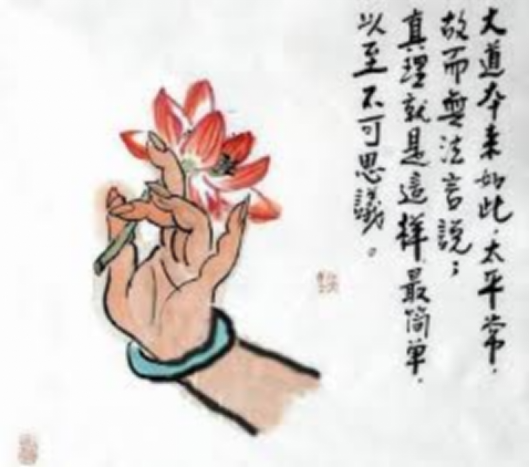 大道本来如此，太平常，
故而無法言説；
真理就是這样，最简单，
以至不可思議。